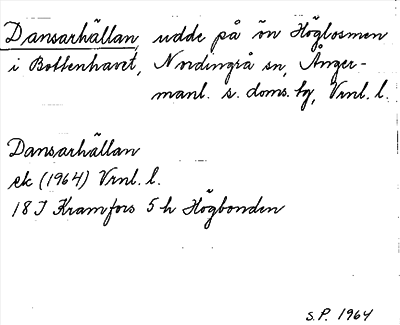 Dansarhällan, udde på ön Höglosmen
i Bottenhavet, Nordingrå sn, Ånger-
manl. s. doms. hg, Vrnl. l.
Dansarhällan
ek (1964) Vrnl. l.
18 J Kramfors 5 h Högbonden
S.P. 1964